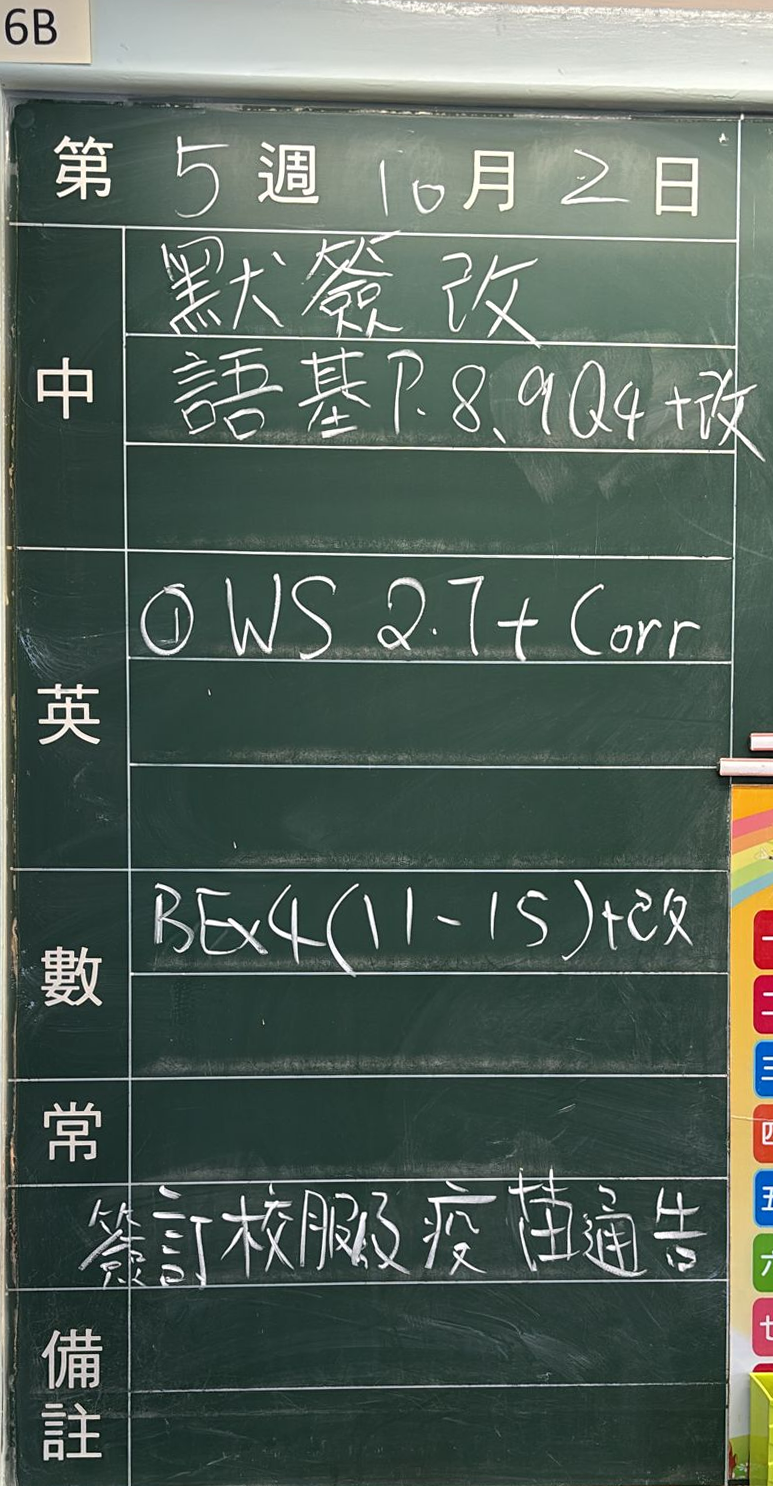 6B
第 5 週 10 月 2 日
中
默簽改
語基P.8、9Q4+改
英
① WS 2.7 + Corr
數
BEx4(11-15)+改
常
簽訂校服及疫苗通告
備註
一
二
三
四
五
六
七